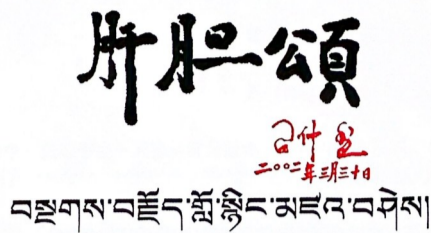 肝胆颂
二〇〇二年三月三十日
བསྔགས་བརྗོད་གློ་སྙིང་མཛའ་བཤེས།